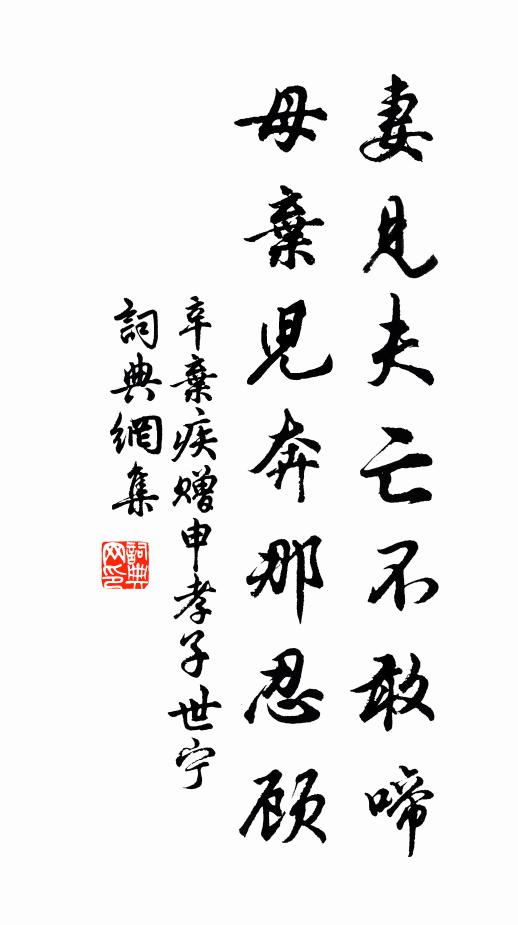 妻見夫亡不敢啼
母棄兒奔那忍顾
辛棄疾赠申孝子世宁
詞典網集
詞典网印